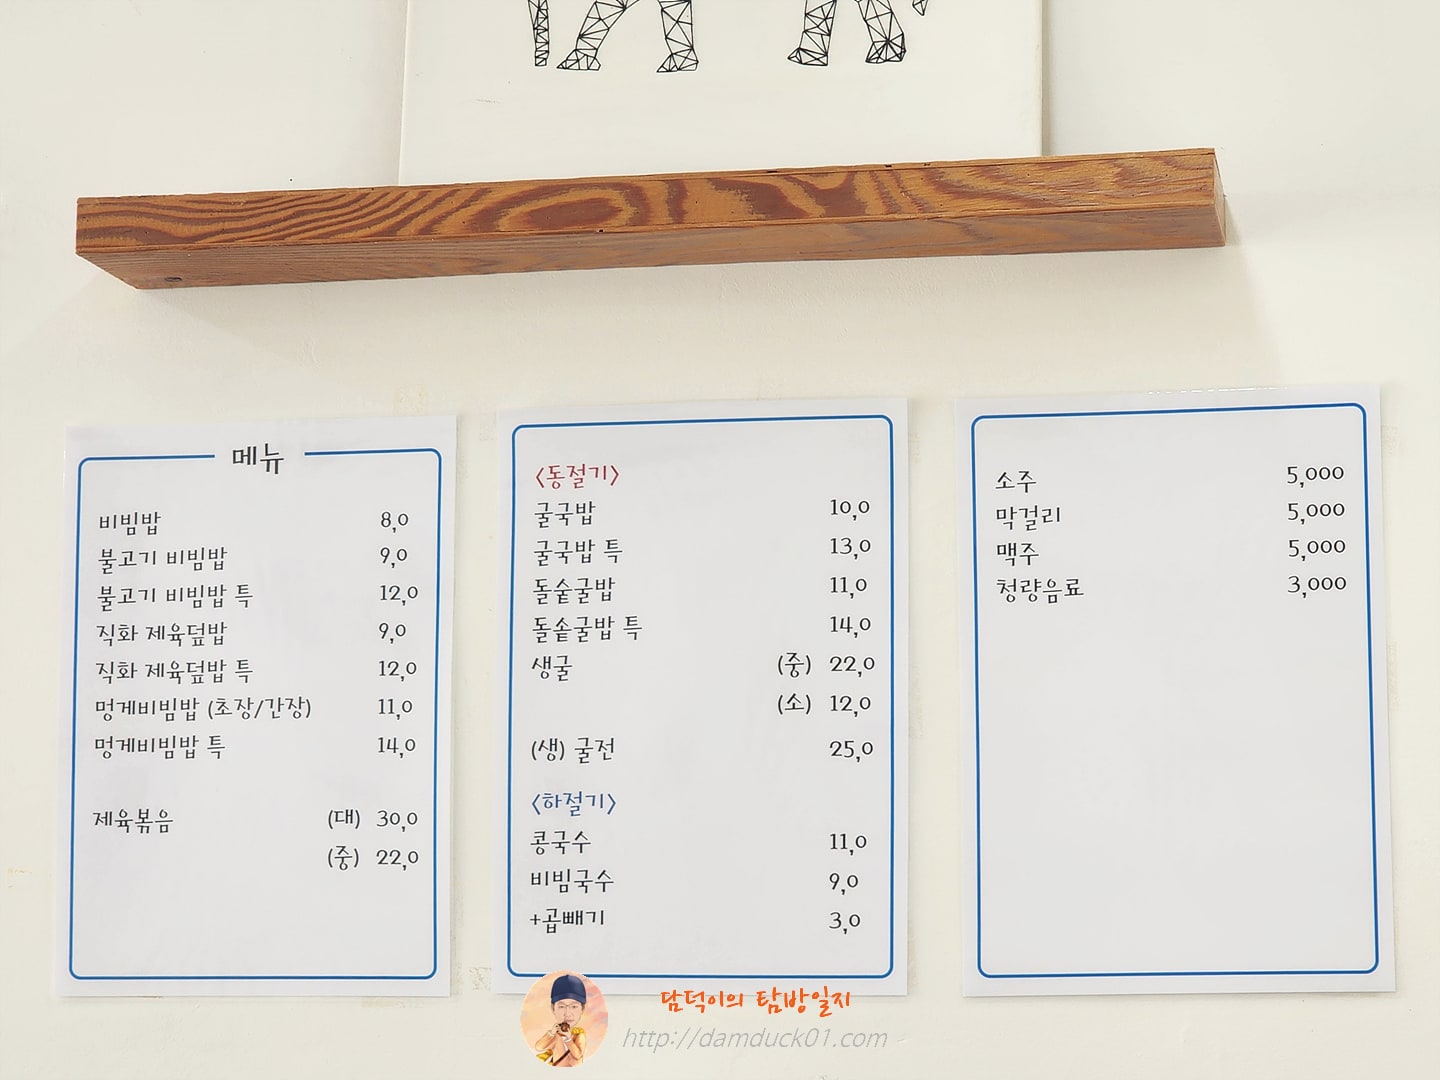 메뉴
비빔밥 8,0
불고기 비빔밥 9,0
불고기 비빔밥 특 12,0
직화 제육덮밥 9,0
직화 제육덮밥 특 12,0
멍게비빔밥 (초장/간장) 11,0
멍게비빔밥 특 14,0
제육볶음 (대) 30,0
(중) 22,0
<동절기>
굴국밥 10,0
굴국밥 특 13,0
돌솥굴밥 11,0
돌솥굴밥 특 14,0
생굴 (중) 22,0
(소) 12,0
(생) 굴전 25,0
<하절기>
콩국수 11,0
비빔국수 9,0
+곱빼기 3,0
소주 5,000
막걸리 5,000
맥주 5,000
청량음료 3,000
담덕이의 탐방일지
http://damduck01.com